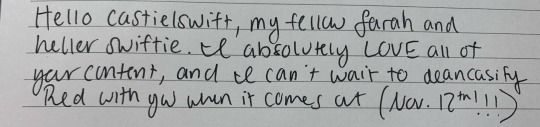 Hello castielswift, my fellow farah and
heller swiftie. I absolutely LOVE all of
your content, and I can't wait to deancasify
Red with you when it comes out (Nov. 12th!!!)